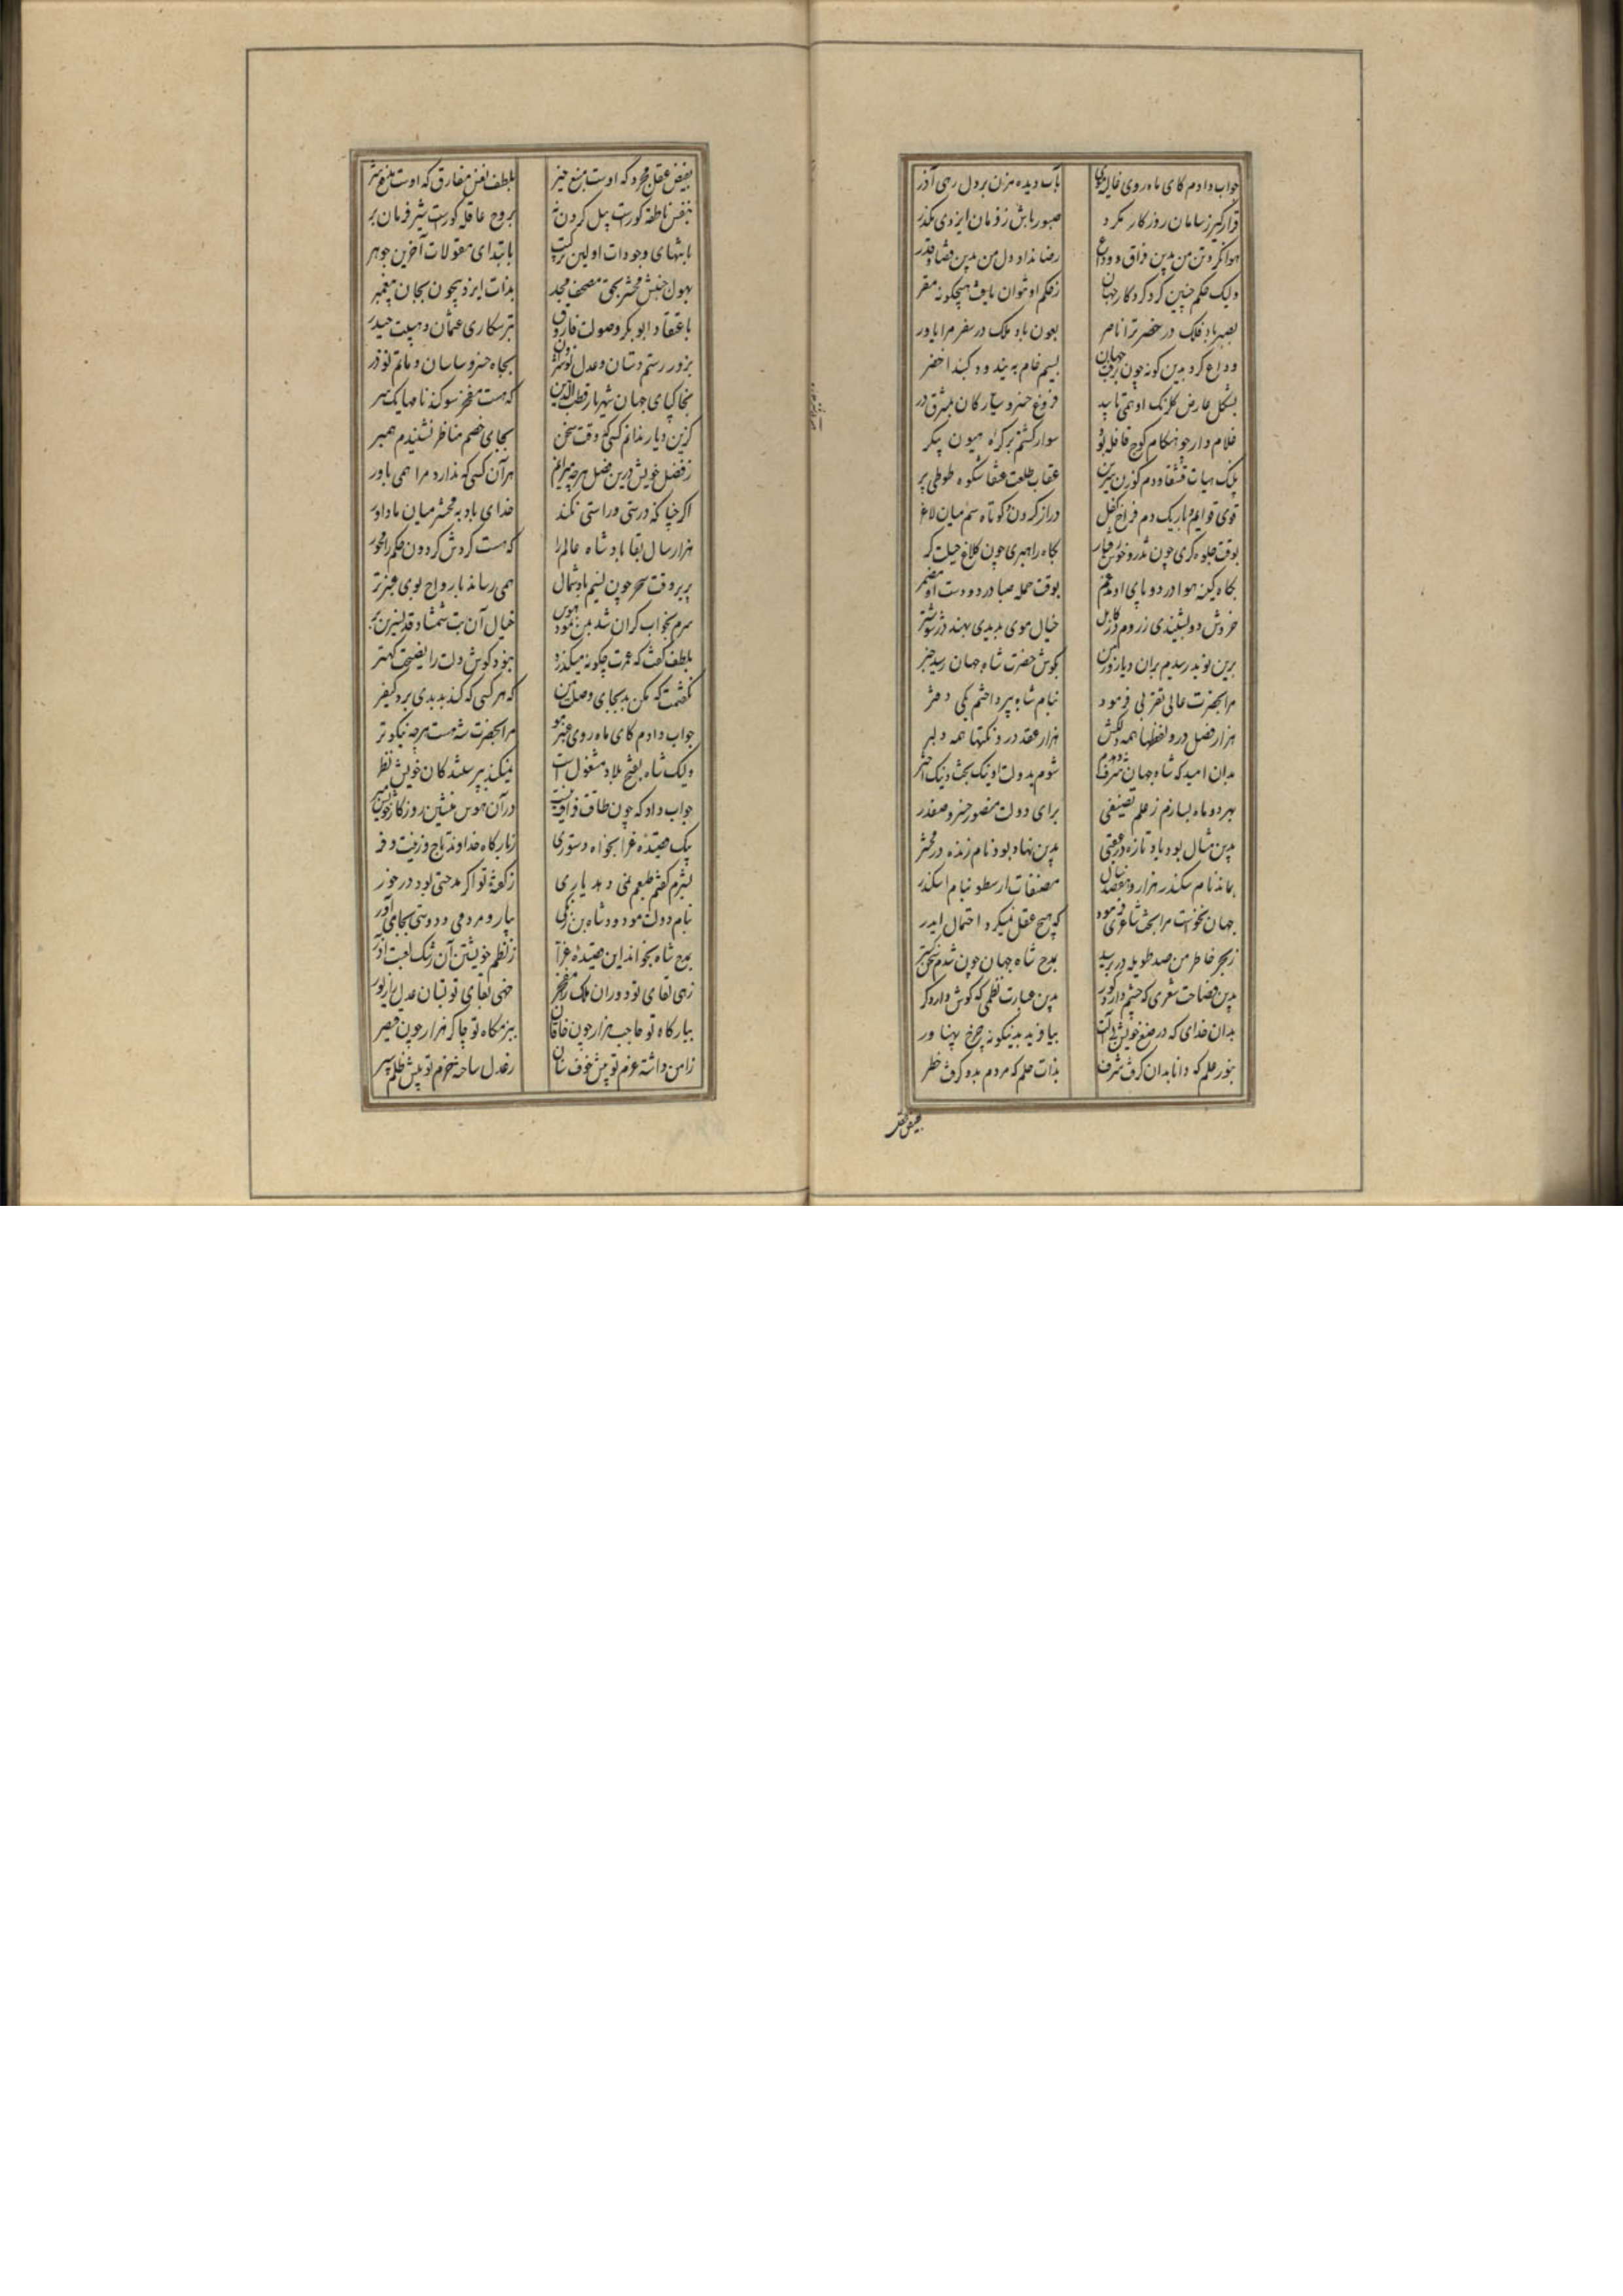 جواب دادم کای ماه روی غالیه موی بآب دیده مزن بر دل رهی آذر
قرار گیر ز سامان روزگار مگرد صبور باش ز فرمان ایزدی مگذر
هوا نکرد تن من بدین فراق و وداع رضا نداد دل من بدین قضا و قدر
ولیک حکم چنین کرد کردگار جهان ز حکم او نتوان یافت هیچگونه مفر
بصبر باد فلک در حضر ترا ناصر بعون باد ملک در سفر مرا یاور
وداع کرد بدین گونه چون برفت جهان بسیم خام بیندود گنبد اخضر
بشکل عارض گلرنگ او همی تابید فروغ خسرو سیارگان ز مشرق در
غلام وار چو هنگام کوچ قافله بود سوار گشتم بر کره هیون پیکر
پلنگ هیات قشقاو دم گوزن سرین عقاب طلعت عنقا شکوه طوطی پر
قوی قوایم و باریک دم فراخ کفل دراز گردن و کوتاه سم میان لاغر
بوقت جلوه گری چون تذرو خوش رفتار بگاه راهبری چون کلاغ حیلت گر
بگاه کینه هوا در دو پای او مدغم بوقت حمله صبا در دو دست او مضمر
خروش دو بشنیدی ز روم در کابل خیال موی بدیدی بهند در ششتر
برین نوید رسیدم بران دیار و زمین بگوش حضرت شاه جهان رسید خبر
مرا بحضرت عالی تقربی فرمود بنام شاه بپرداختم یکی دفتر
هزار فصل درو لفظها همه دلکش هزار عقد درو نکتها همه دلبر
بدان امید که شاه جهان شرف دهدم شوم بدولت او نیک بخت و نیک اختر
بهر دو ماه بسازم ز علم تصنیفی برای دولت منصور خسرو صفدر
بدین مثال بود یاد تازه در عقبی بدین نهاد بود نام زنده در محشر
بماند نام سکندر هزار و نهصد سال مصنفات ارسطو بنام اسکندر
جهان نخواست مرا بخت شاعری فرمود که هیچ عقل نمیکرد احتمال ایدر
ز بحر خاطر من صد طویله در برسید بمدح شاه جهان چون شدم سخن گستر
بدین فصاحت شعری که چشم دارد کور بدین عبارت نظمی که گوش دارد کر
بدان خدای که در صنع خویش بی آلت بیافرید بدینگونه چرخ پهناور
بنور علم که دانا بدان گرفت شرف بذات علم که مردم بدو گرفت خطر
بفیض عقل
بفیض عقل مجرد که اوست منبع خیر بلطف نفس مفارق که اوست منبع شر
بنفس ناطقه کورست پیل گردن نه بروح عاقله کورست شیر فرمان بر
بانتهای وجودات اولین ترکیب بابتدای مقولات آخرین جوهر
بهول جنبش محشر بحق مصحف مجد بذات ایزد بیچون بجان پیغمبر
باعتقاد ابوبکر و صولت فاروق بترسکاری عثمان و هیبت حیدر
بزور رستم دستان و عدل نوشروان بجاه خسرو ساسان و ماتم نوذر
بخاکپای جهان شهریار قطب الدین که هست مفخر سوگند نامها یکسر
کزین دیار ندانم کسی که وقت سخن بجای خصم مناظر نشیندم همبر
ز فضل خویش درین فصل هرچه میرانم هرآن کسی که ندارد مرا همی باور
اگر چنانکه درستی و راستی نکند خدای باد به محشر میان ما داور
هزار سال بقا باد شاه عالم را که هست گردش گردون حکم را محور
پریر وقت سحر چون نسیم باد شمال همی رساند بارواح بوی عنبر تر
سرم بخواب گران شد بمن نمود هوس خیال آن بت شمشاد قد نسرین بر
بلطف گفت که عمرت چگونه میگذرد بزد گوش دلت را نصیحت کهتر
نگفتمت که مکن بد بجای وصلت من که هر کسی که کند بد بدی برد کیفر
جواب دادم کای ماه روی عنبر مو مرا بحضرت شه هست هرچه نیکوتر
ولیک شاه بفتح بلاد مشغول است نمیکند بپرستندگان خویش نظر
جواب داد که چون طاقت فراقت نیست در آن هوس منشین روزگار خویش مبر
یک قصیده غرا بخواه دستوری ز بارگاه خداوند تاج و زینت و فر
بشرم گفتم طبعم نمی دهد یاری ز گفته تو اگر مدحتی بود درخور
بنام دولت مودود شاه بن زنگی بیار و مردمی و دوستی بجای آور
بمدح شاه بخواند این قصیده غرا ز نظم خویشتن آن رشک لعبت آذر
زهی بقای تو دوران ملک را مفخر خهی لقای تو بستان عدل را زیور
ببارگاه تو حاجب هزار چون خاقان ببزمگاه تو چاکر هزار چون قیصر
ز امن داشته عزم تو پیش خوف سنان ز عدل ساخته حزم تو پیش ظلم سپر